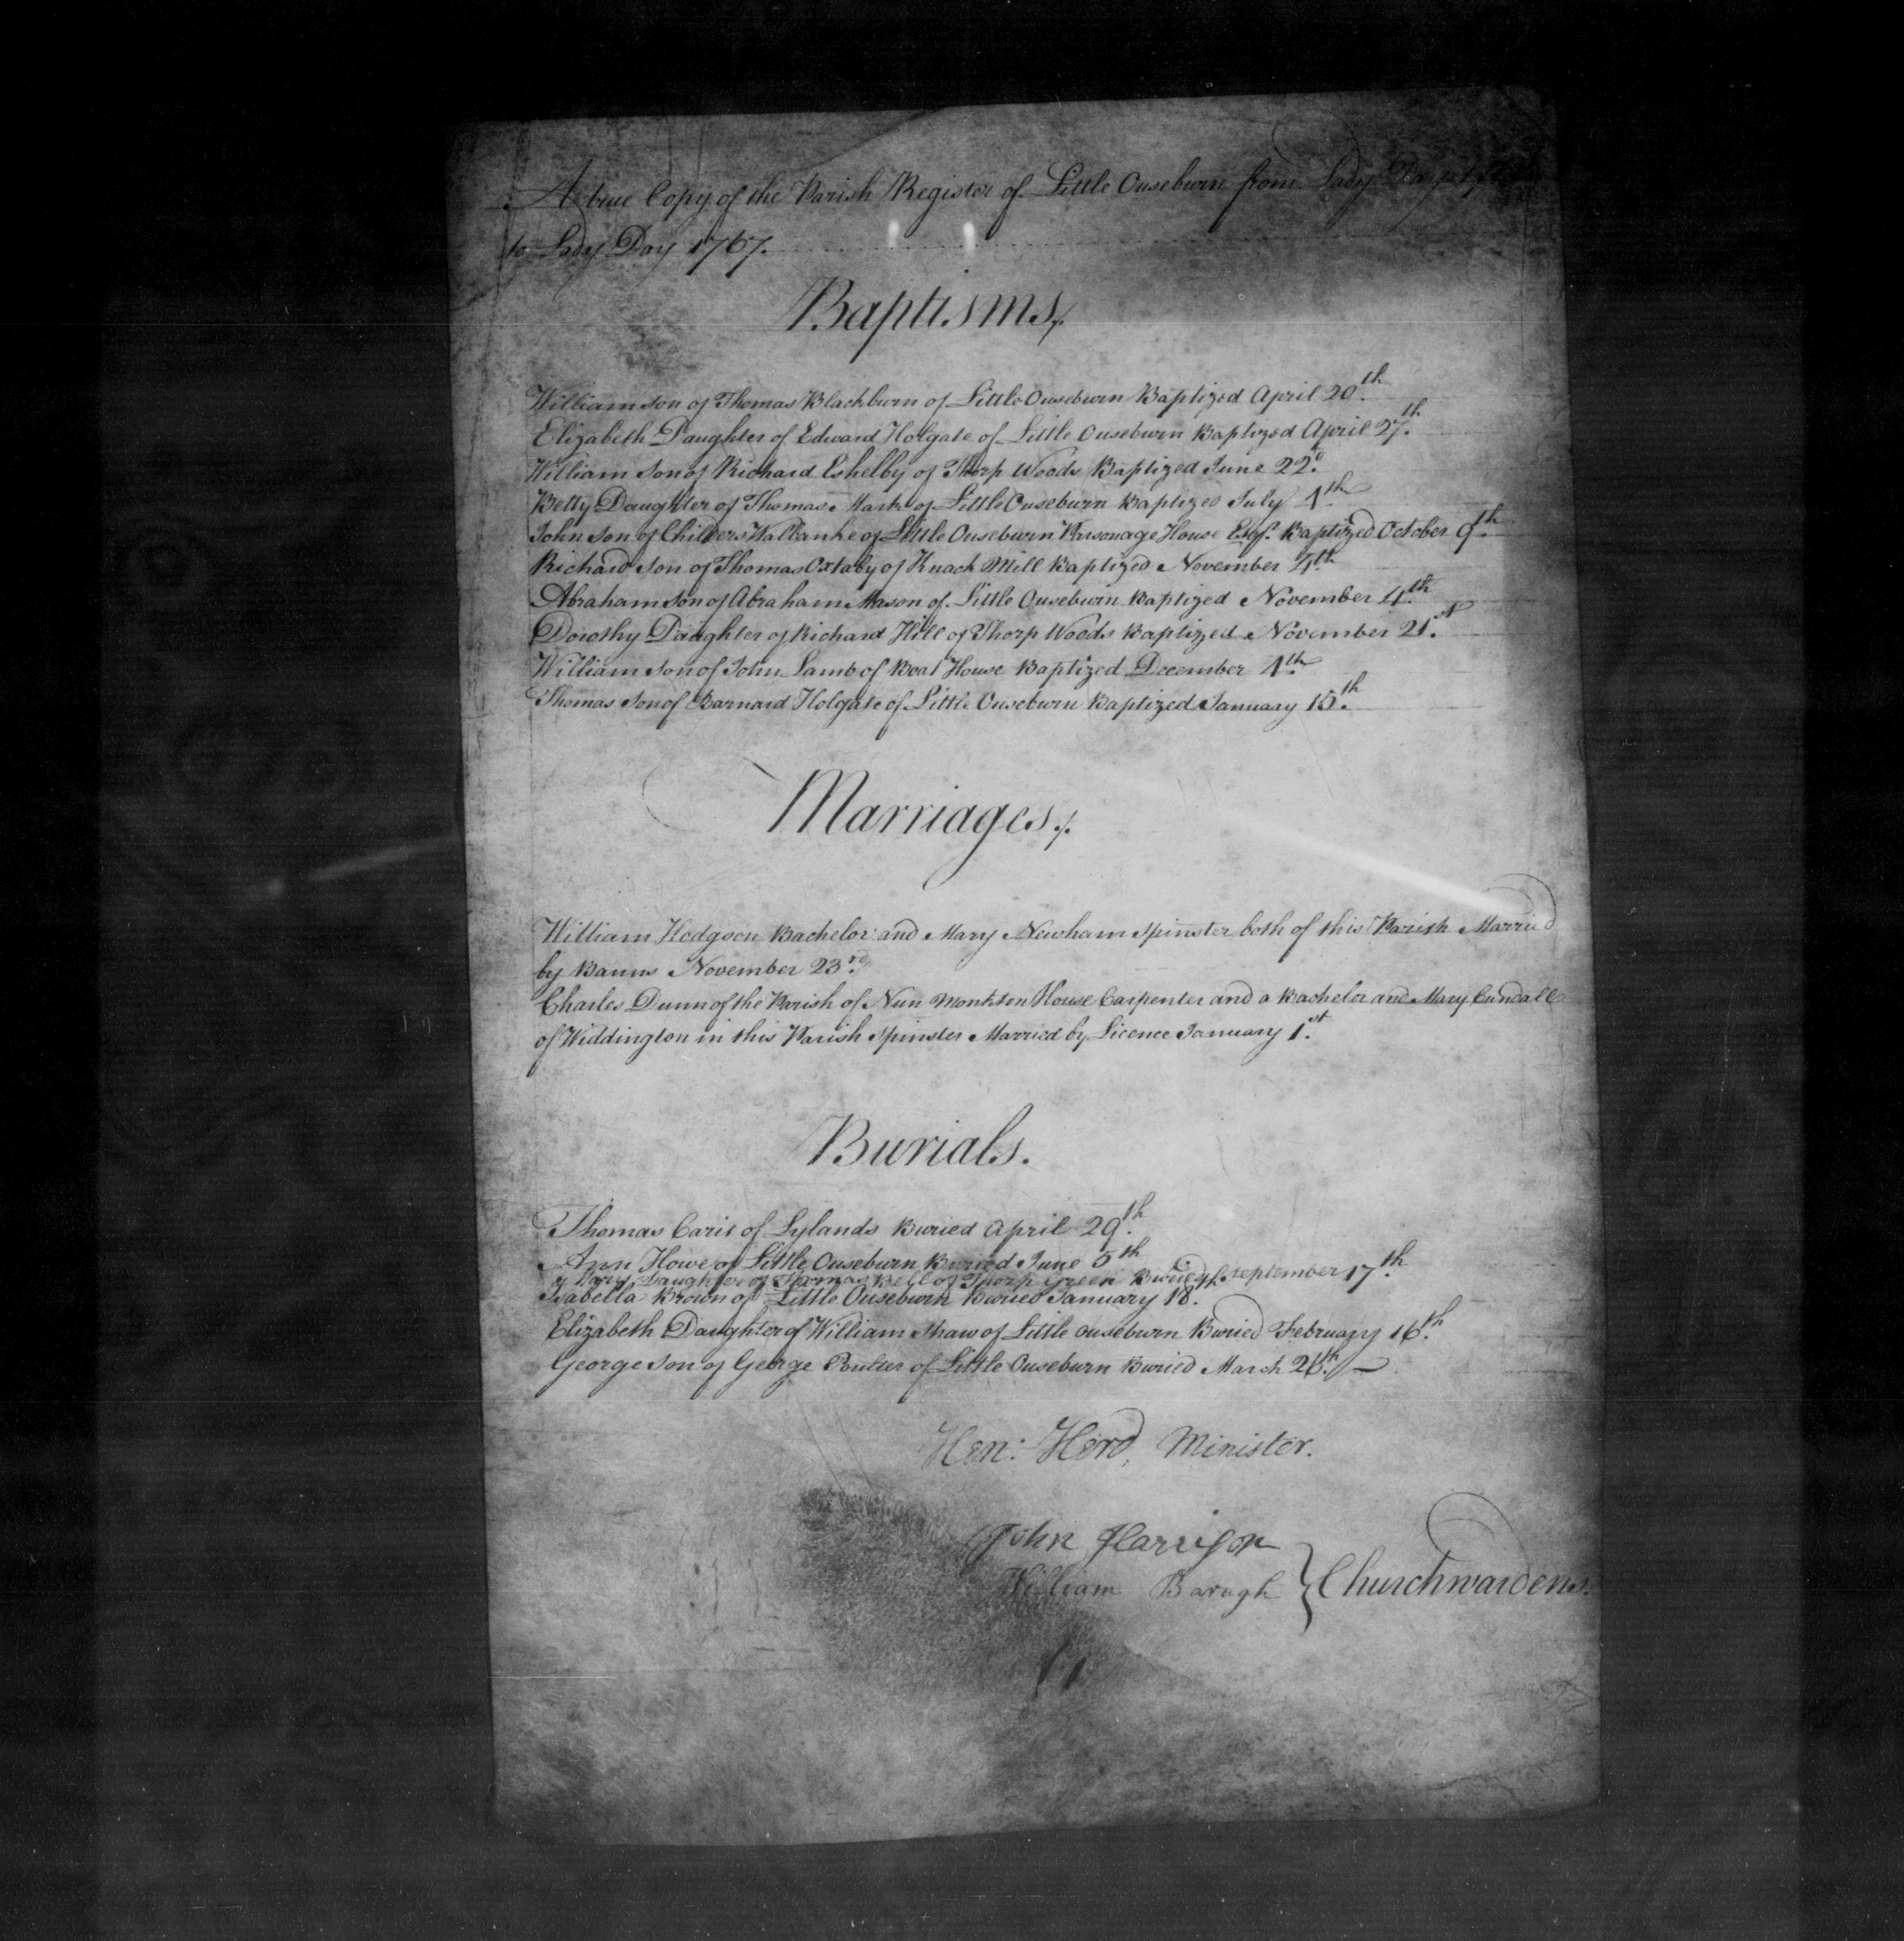 A true Copy of the Parish Register of Little Ouseburn from Lady Day
to Lady Day 1767.
Baptisms.
William son of Thomas Blackburn of Little Ouseburn Baptized April 20th.
Elizabeth Daughter of Edward Holgate of Little Ouseburn Baptized April 27th.
William Son of Richard Eshelby of Thorp Woods Baptized June 22d.
Betty Daughter of Thomas Mark of Little Ouseburn Baptized July 4th.
John Son of Childers of Little Ouseburn Parsonage House Esqr. Baptized October 9th.
Richard Son of Thomas Oxtaby of Knack Mill Baptized November 4th.
Abraham Son of Abraham Mason of Little Ouseburn Baptized November 4th.
Dorothy Daughter of Richard Hill of Thorp Woods Baptized November 21st.
William Son of John Lamb of Boat House Baptized December 4th.
Thomas Son of Barnard Holgate of Little Ouseburn Baptized January 15th.
Marriages.
William Hodgson Bachelor and Mary Newham Spinster both of this Parish Married
by Banns November 23rd.
Charles Dunn of the Parish of Nun Monkton House Carpenter and a Bachelor and Mary Cundall
of Widdington in this Parish Spinster Married by Licence January 1st.
Burials.
Thomas Caris of Lylands Buried April 29th.
Ann Howe of Little Ouseburn Buried June 5th
Mary Daughter of Thomas Bell of Thorp Green Buried September 17th.
Isabella Brown of Little Ouseburn Buried January 18th.
Elizabeth Daughter of William Shaw of Little Ouseburn Buried February 16th.
George Son of George Poulter of Little Ouseburn Buried March
Hen: Herd, Minister.
John Harrison
William Barugh } Churchwardens.